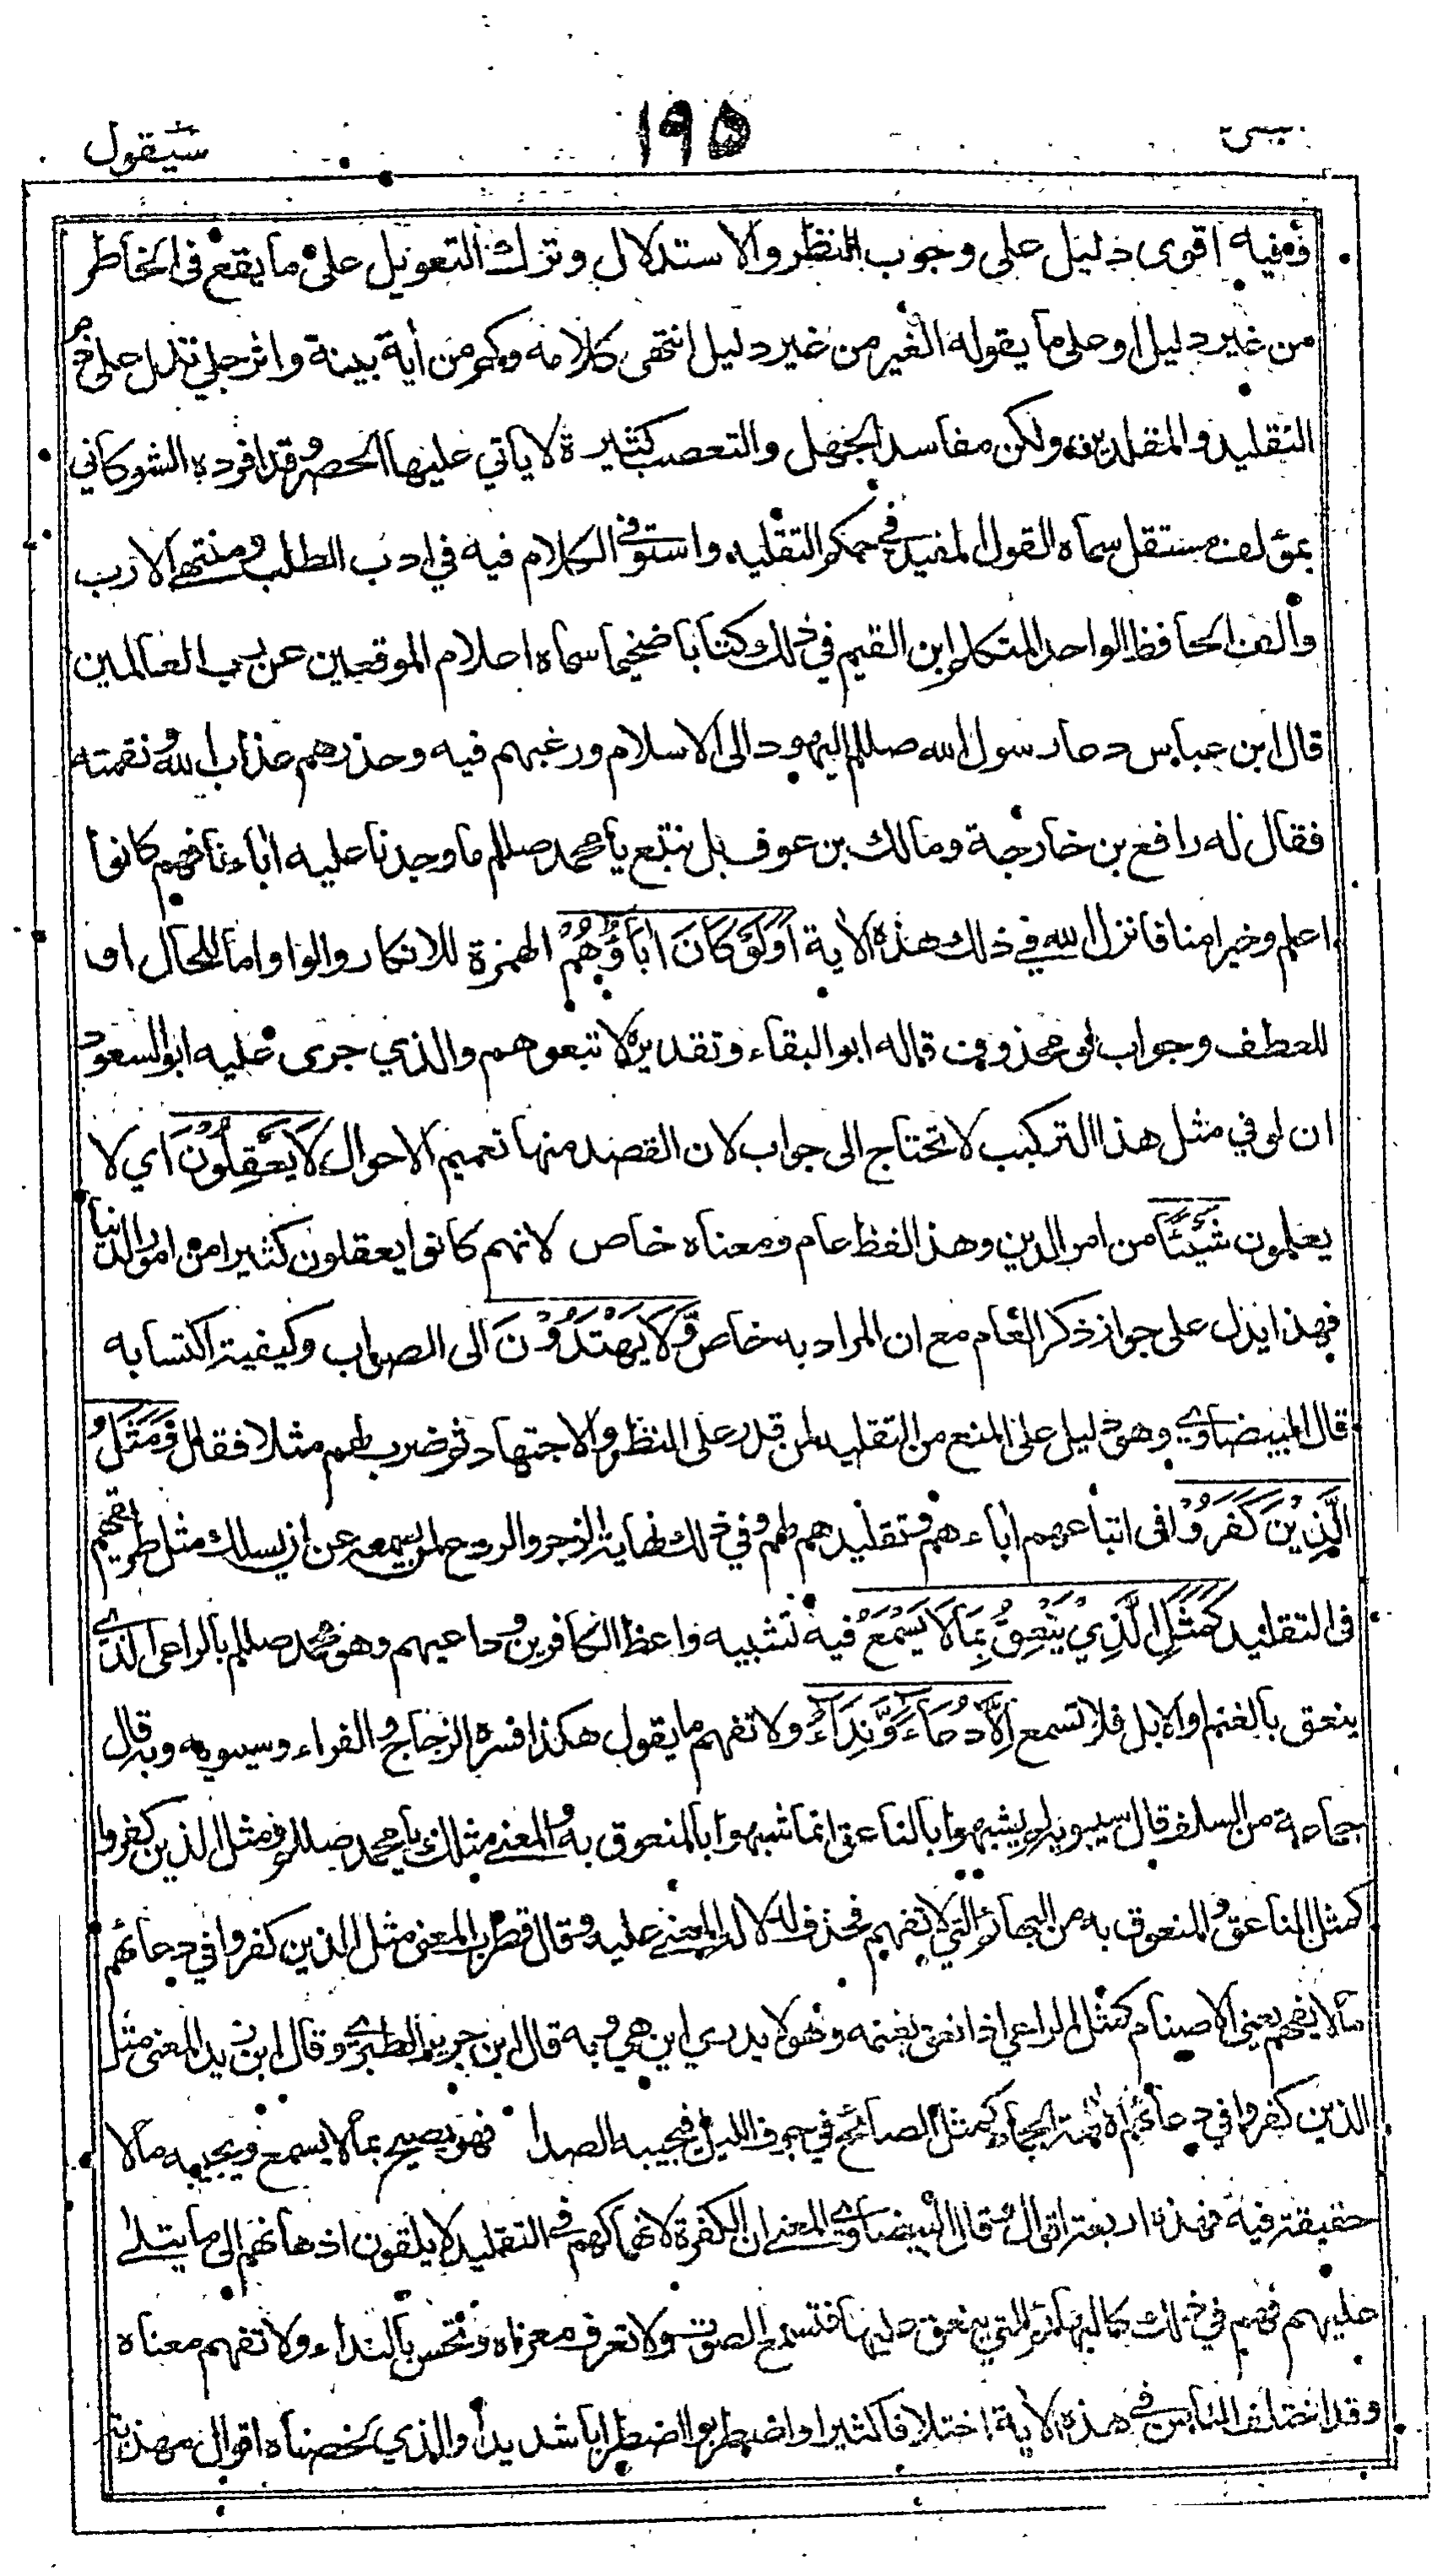 سيقول
١٩٥
وفيه اقوى دليل على وجوب النظر والاستدلال وترك التعويل على ما يقع في الخاطر
من غير دليل او على ما يقوله الغير من غير دليل انتهى كلامه وكم من أية بينة واثر جلي تدل على ذم
التقليد والمقلدين ولكن مفاسد الجهل والتعصب كثيرة لا ياتي عليها الحصر وقد افرده الشوكاني
بمؤلف مستقل سماه القول المفيد في حكم التقليد واستوفى الكلام فيه في ادب الطلب ومنتهى الارب
وألف الحافظ الواحد المتكلم ابن القيم في ذلك كتابا ضخيما سماه اعلام الموقعين عن رب العالمين
قال ابن عباس دعا رسول الله صللم اليهود الى الاسلام ورغبهم فيه وحذرهم عذاب الله ونقمته
فقال له رافع بن خارجة ومالك بن عوف بل نتبع يا محمد صللم ما وجدنا عليه اباءنا فهم كانوا
اعلم وخيرا منا فانزل الله في ذلك هذه الاية اَوَلَوْ كَانَ اٰبَاؤُهُمْ الهمزة للانكار والواو اما للحال او
للعطف وجواب لو محذوف قاله ابو البقاء وتقديره لاتبعوهم والذي جرى عليه ابو السعود
ان لو في مثل هذا التركيب لا تحتاج الى جواب لان القصد منها تعميم الاحوال لَا يَعْقِلُوْنَ اي لا
يعلمون شَيْئًا من امر الدين وهذا لفظ عام ومعناه خاص لانهم كانوا يعقلون كثيرا من امور الدنيا
فهذا يدل على جواز ذكر العام مع ان المراد به خاص وَّلَا يَهْتَدُوْنَ الى الصواب وكيفية اكتسابه
قال البيضاوي وهو دليل على المنع من التقليد لمن قدر على النظر والاجتهاد ثم ضرب لهم مثلا فقال وَمَثَلُ
الَّذِيْنَ كَفَرُوْا في اتباعهم اباءهم وتقليدهم لهم وفي ذلك نهاية الزجر والردع لمن يسمعه عن ان يسلك مثل طريقهم
في التقليد كَمَثَلِ الَّذِيْ يَنْعِقُ بِمَا لَا يَسْمَعُ فيه تشبيه واعظ الكافرين وداعيهم وهو محمد صللم بالراعي الذي
ينعق بالغنم او الابل فلا تسمع اِلَّا دُعَاءً وَّنِدَاءً ولا تفهم ما يقول هكذا فسره الزجاج والفراء وسيبويه وبه قال
جماعة من السلف قال سيبويه لم يشبهوا بالناعق انما شبهوا بالمنعوق به والمعنى مثلك يا محمد صللم ومثل الذين كفروا
كمثل الناعق والمنعوق به من البهائم التي لا تفهم فحذف لدلالة المعنى عليه وقال قطرب المعنى مثل الذين كفروا في دعائهم
ما لا يفهم يعني الاصنام كمثل الراعي اذا نعق بغنمه وهو لا يدري اين هي وبه قال ابن جرير الطبري وقال ابن زيد المعنى مثل
الذين كفروا في دعائهم الهة الجماد كمثل الصائح في جوف الليل فيجيبه الصدا فهو يصيح بما لا يسمع ويجيبه ما لا
حقيقة فيه فهذه اربعة اقوال قال البيضاوي المعنى ان الكفرة لانهماكهم في التقليد لا يلقون اذهانهم الى ما يتلى
عليهم فهم في ذلك كالبهائم التي ينعق عليها فتسمع الصوت ولا تعرف مغزاه وتحس بالنداء ولا تفهم معناه
وقد اختلف الناس في هذه الاية اختلافا كثيرا واضطربوا اضطرابا شديدا والذي لخصناه اقوال مهذبة